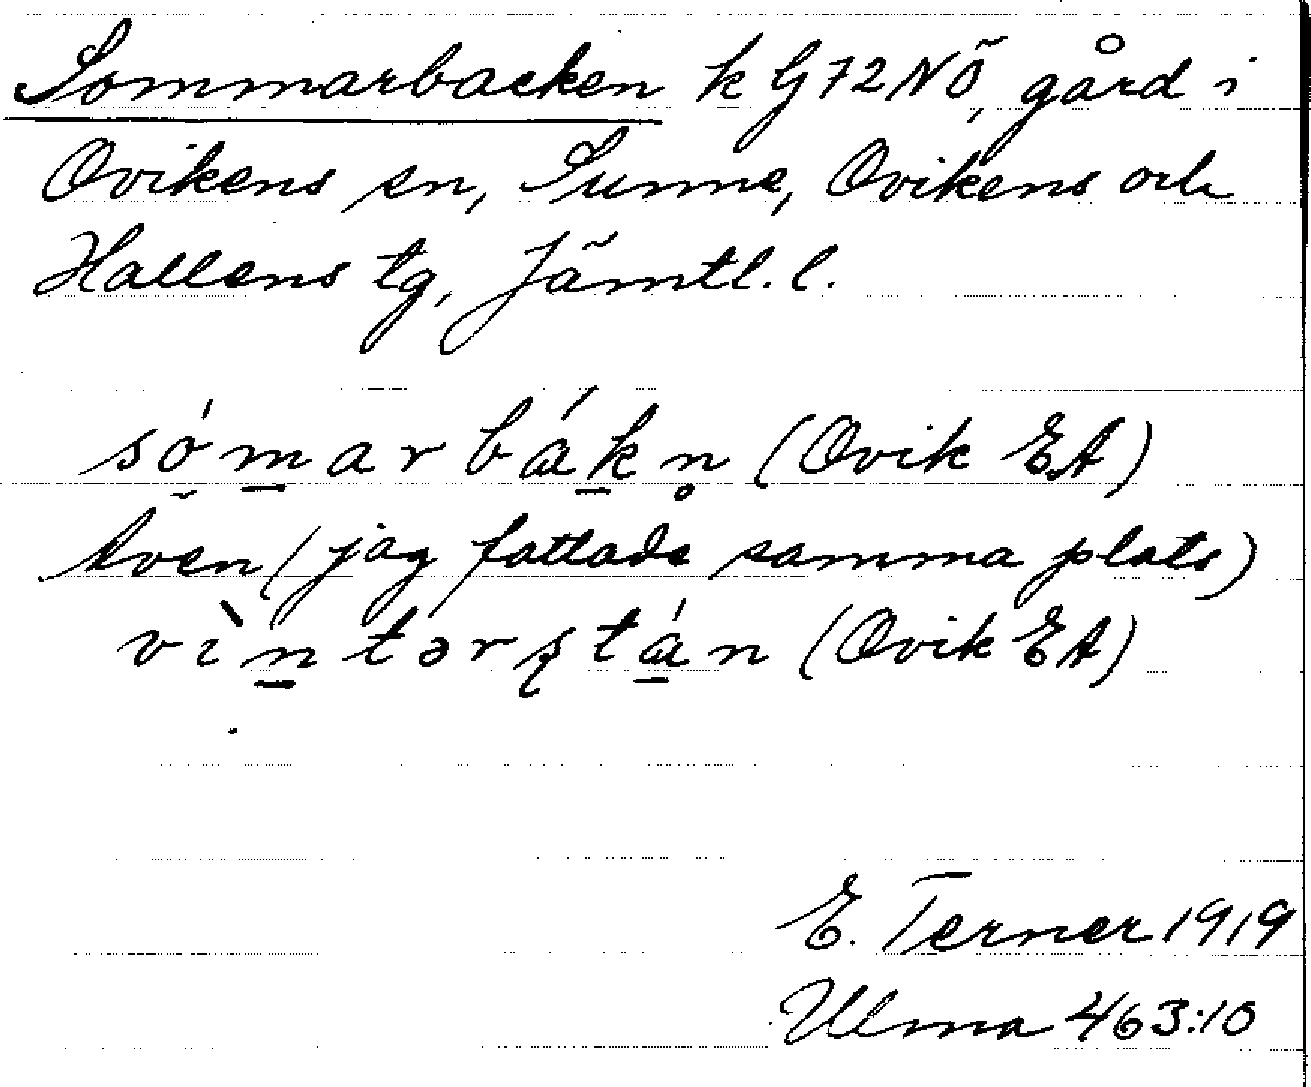 Sommarbacken k G72NÖ, gård i
Ovikens sn, Sunne, Ovikens och
Hallens tg, Jämtl. l.
sóm̲arbák̲n̥ (Ovik EA)
även (jag fattade samma plats)
vìn̲tərʂtá̲n (Ovik EA)
E. Terner 1919
Ulma 463:10